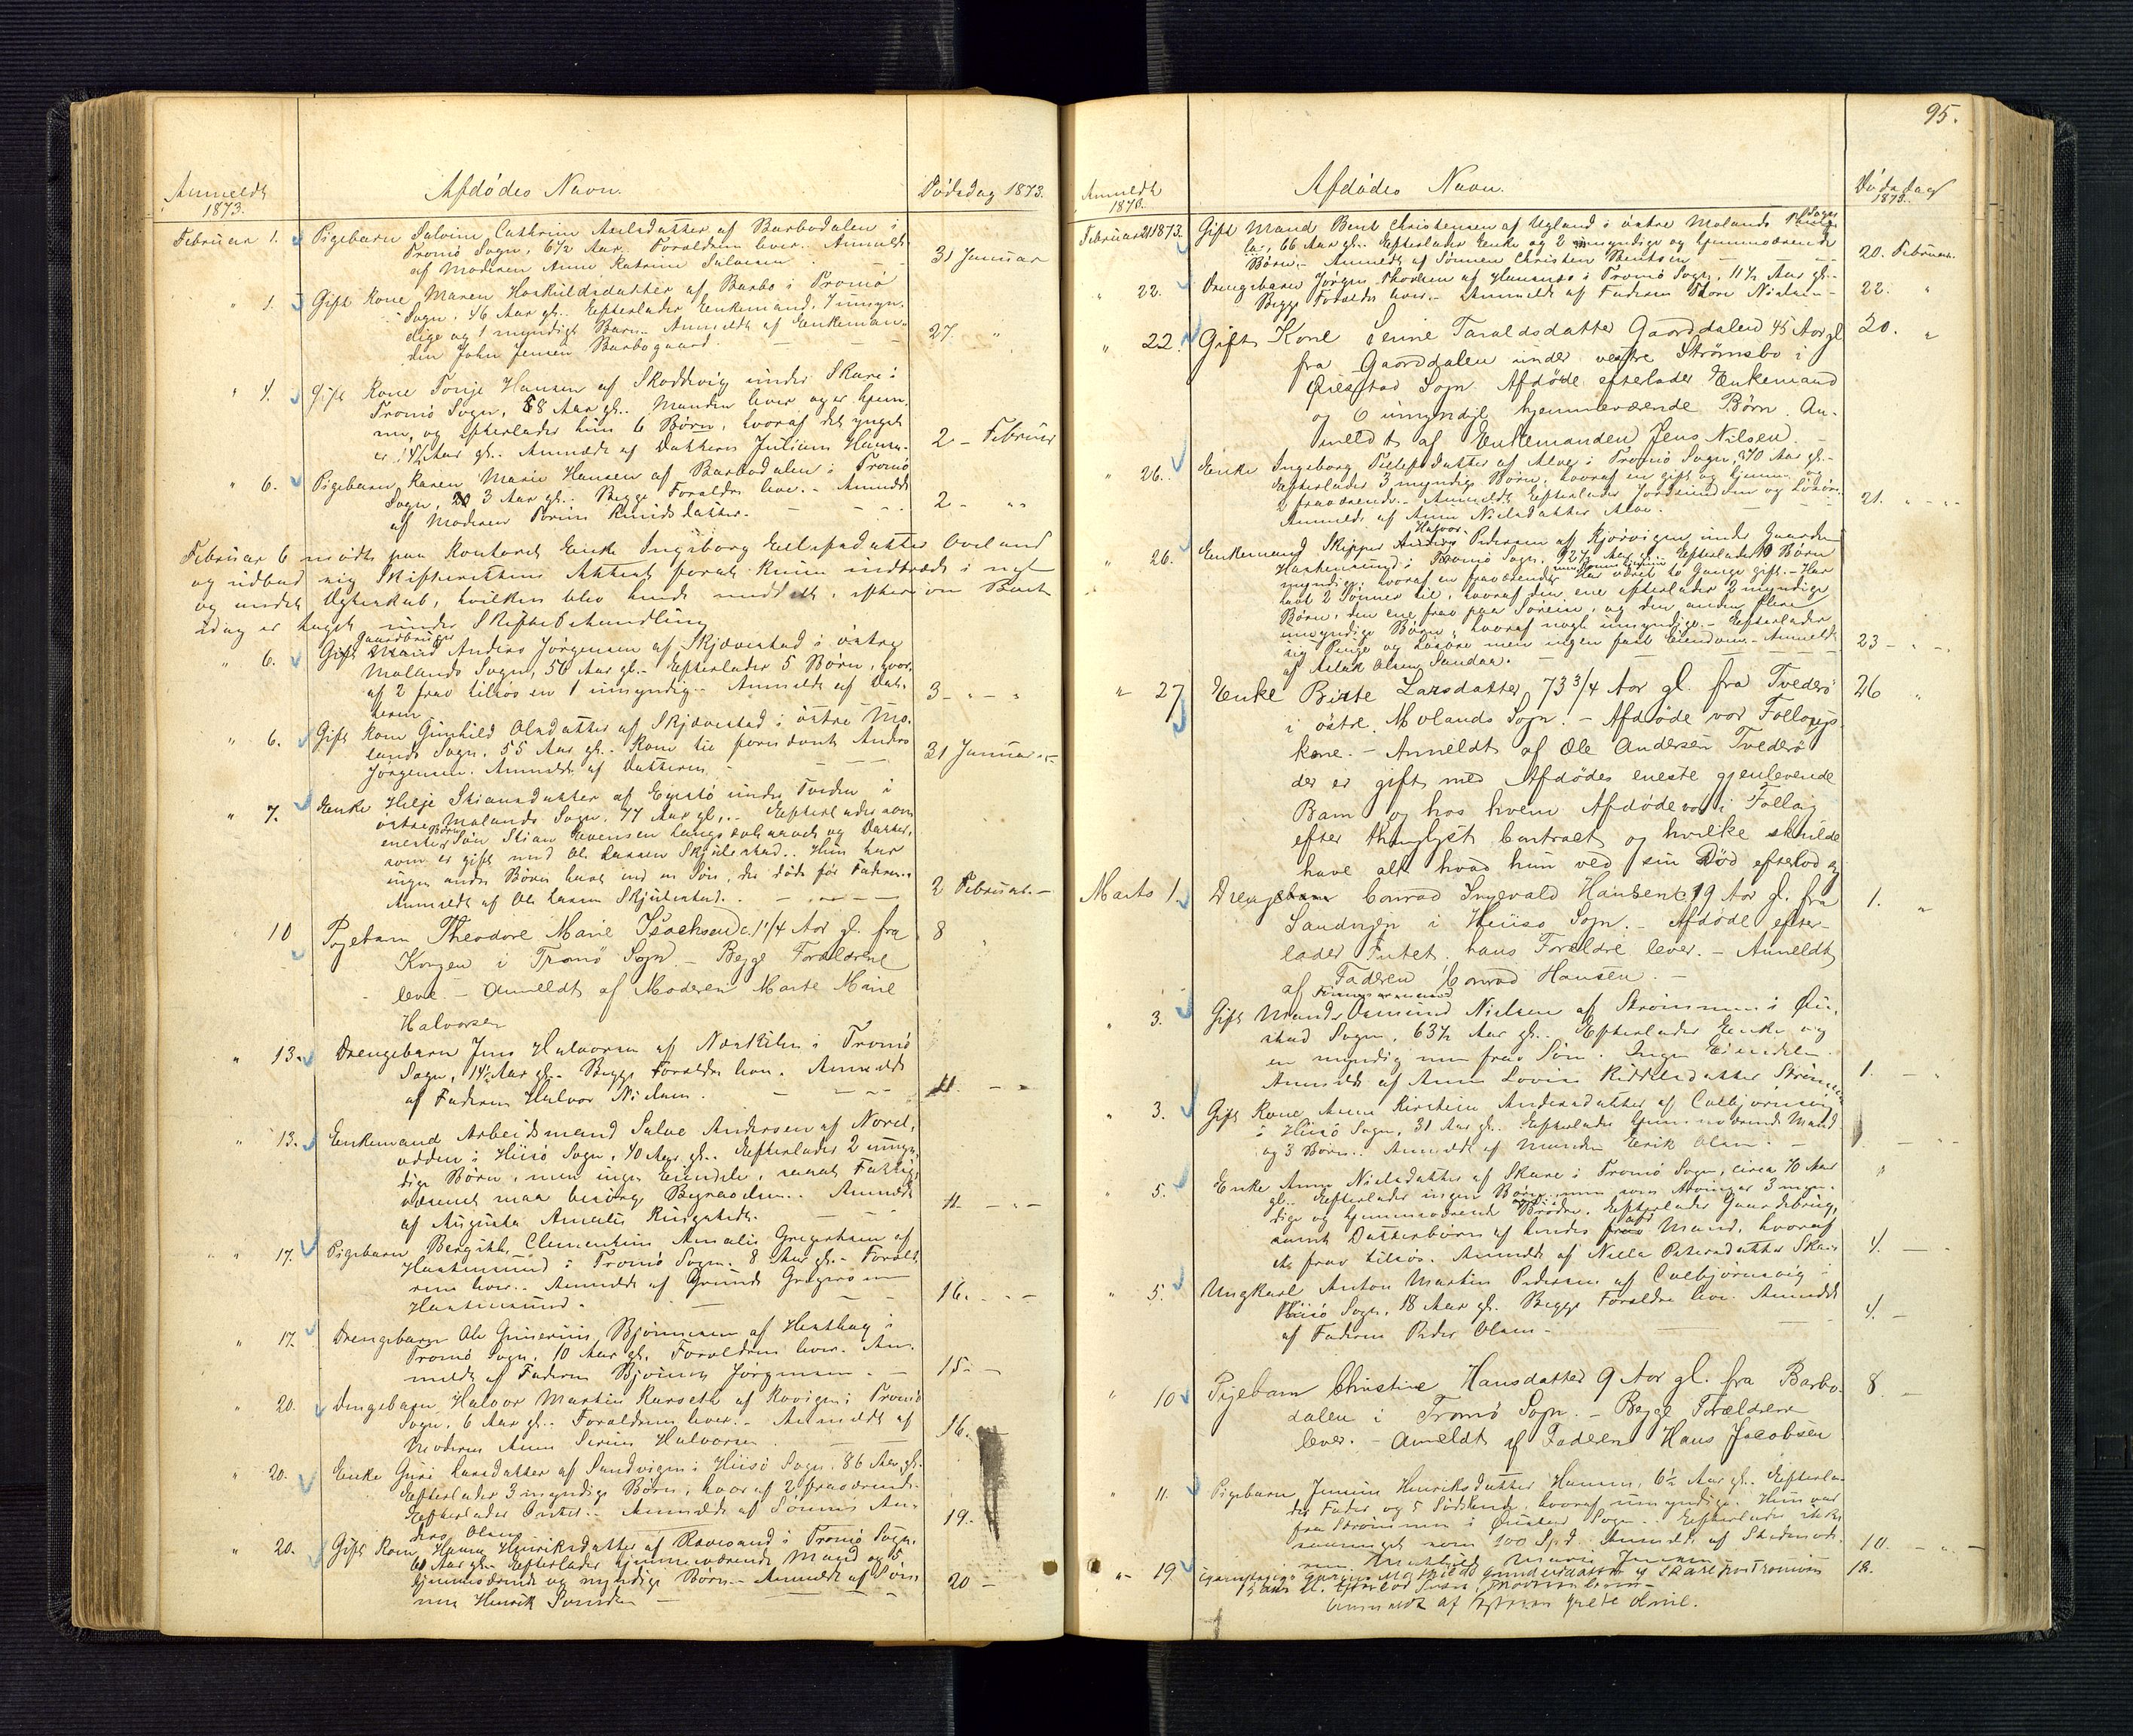 Anmeldt 1873.
Afdødes Navn.
Dödsdag 1873.
Februar 1. Pigebarn Salvine Cathrine Axelsdatter af Barbodalen i
Tromö Sogn, 6½ Aar. Forældrene lever. Anmeldt
af Moderen Anne Katrine Salvesen 31 Januar
" 1. Gift Kone Maren Hoskuldsdatter af Barbo i Tromö
Sogn, 46 Aar gl. Efterlader Enkemand, 7 umyn-
dige og 1 myndigt Barn. Anmeldt af Enkeman-
den John Jensen Barbogaard. 27. "
" 4. Gift Kone Tonje Hansen af Skoddevig under Skare i
Tromö Sogn, 58 Aar gl. Manden lever og er hjem-
me, og efterlader hun 6 Børn, hvoraf det yngste
er 14½ Aar gl. Anmeldt af Datteren Juliane Hansen 2 - Februar
" 6. Pigebarn Karen Marie Hansen af Barbodalen i Tromö
Sogn, 3 Aar gl. Begge Forældre lever. - Anmeldt
af Moderen Knudsdatter. 2 - "
Februar 6 mødte paa Kontoret Enke Ingeborg Eilefsdatter Oveland
og udbad sig Skifterettens Attest forat kunne indtræde i nyt
og andet Ægteskab, hvilken blev hende meddelt, eftersom Boet
idag er taget under Skiftebehandling
" 6. Gift Gaardbruger Anders Jørgensen af Skjævestad i östre
Molands Sogn, 56 Aar gl. - Efterlader 5 Børn, hvor-
af 2 frav tilsøs en 1 umyndig. - Anmeldt af Dat-
teren 3 - " - "
" 6. Gift Kone Gunhild Olsdatter af Skjævestad i östre Mo-
lands Sogn, 55 Aar gl. - Kone til forudanf. Anders
Jørgensen. Anmeldt af Datteren 31 Januar
" 7. Enke Helje Stiansdatter af under Tveden i
östre Molands Sogn, 77 Aar gl. - Efterlader som
eneste Børn Søn Stian Evensen Langs og Datter,
som er gift med Ole Larsen Skjulestad. Hun har
ingen andre Børn havt end en Søn, der døde før Faderen.
Anmeldt af Ole Larsen Skjulestad. 2 Februar. -
10 Pigebarn Theodore Marie Isachsen c. 1¼ Aar gl. fra
i Tromö Sogn. - Begge Forældrene
leve. - Anmeldt af Moderen Marte Marie
Halvorsen 8 "
" 13. Drengebarn Jens Halvorsen af Næskilen i Tromö
Sogn, 14½ Aar gl. - Begge Forældre leve. Anmeldt
af Faderen Halvor Nielsen. 11. - "
" 13. Enkemand Arbeidsmand Salve Andersen af Nord-
odden i Hisö Sogn, 40 Aar gl. Efterlader 2 umyn-
dige Børn, men ingen Eiendele, saaat Fattig-
væsenet maa besørge Begravelsen. Anmeldt
af Augusta Amalie 11. - " -
" 17. Pigebarn Bergithe Clementine Amalie Gregersen af
Hastensund i Tromö Sogn, 8 Aar gl. - Foræld-
rene lever. Anmeldt af Gregersen
Hastensund. 16. - " -
" 17. Drengebarn Ole Gunerius Bjørnsen af Hesthag i
Tromö Sogn, 10 Aar gl. Forældrene lever. An-
meldt af Faderen Bjørn Jørgensen. 15. -
" 20. Drengebarn Halvor Martin Karseth af i Tromö
Sogn, 6 Aar gl. Forældrene lever. - Anmeldt af
Moderen Anne Serine Halvorsen. 16. -
" 20. Enke Guri Larsdatter af Sandvigen i Hisö Sogn, 86 Aar gl.
Efterlader 3 myndige Børn, hvoraf 2 fraværende.
Efterlader Intet. Anmeldt af Sønnen An-
ders Olsen 19. -
" 20. Gift Kone Hanna Henriksdatter af Revesand i Tromö Sogn,
61 Aar gl. - Efterlader hjemmeværende Mand og 5
hjemmeværende og myndige Børn. - Anmeldt af Søn-
nen Henrik 20 -
95.
Anmeldt 1873.
Afdødes Navn.
Dödsdag 1873.
Februar 21 1873. Gift Mand Bent Christensen af Ugland i östre Molands Sogn
66 Aar gl. Efterlader Enke og 2 myndige og hjemmeværende
Børn. - Anmeldt af Sønnen Christen Bentsen 20. Februar.
" 22. Drengebarn Jørgen Thorsen af i Tromö Sogn, 11½ Aar gl. -
Begge Forældre lever. - Anmeldt af Faderen Thore Nielsen - 22. "
" 22. Gift Kone Serine Taraldsdatter Gaarddalen 45 Aar gl
fra Gaarddalen under vestre Strømsbo i
Øiestad Sogn. Afdøde efterlader Enkemand
og 6 umyndige hjemmeværende Børn. An-
meldt af Enkemanden Jens Nilsen. 20. "
" 26. Enke Ingeborg Tellefsdatter af Alve i Tromö Sogn, 70 Aar gl. -
Efterlader 3 myndige Børn, hvoraf en gift og hjemme og
2 fraværende. - Efterlader Jordeiendom og Løsøre.
Anmeldt af Anne Nielsdatter Alve. 21. "
" 26. Enkemand Skipper Halvor Pedersen af Kjørvigen under Gaarden
Hastensund i Tromö Sogn, 92½ Aar gl. Efterlader Børn
myndige, hvoraf en fraværende. Har været to Gange gift. - Har
havt 2 Sønner til, hvoraf den ene efterlader 2 myndige
Børn, den ene frav paa Søreise, og den anden flere
umyndige Børn, hvoraf nogle umyndige. - Efterlader
sig Penge og Løsøre men ingen fast Eiendom. - Anmeldt
af Aslak Olsen Sandaa. 23 - " -
" 27 Enke Birte Larsdatter, 73¾ Aar gl. fra Tvederö
i östre Molands Sogn. - Afdøde var Follogs-
kone. - Anmeldt af Ole Andersen Tvederö
der er gift med Afdødes eneste gjenlevende
Barn og hos hvem Afdøde var i Follog
efter thinglyst Contract og hvilke skulde
have alt hvad hun ved sin Død efterlod sig 26 "
Marts 1. Drengebarn Conrad Ingevald Hansen c. 19 Aar gl. fra
Sandvigen i Hisø Sogn. - Afdøde efter-
lader Intet. hans Forældre lever. - Anmeldt
af Faderen Conrad Hansen. - 1. "
" 3. Gift Mand Tømmermand Osmund Nielsen af Strømmen i Øie-
stad Sogn, 63½ Aar gl. - Efterlader Enke og
en myndig men frav Søn. Ingen Eiendele.
Anmeldt af Anne Lovise Strømmen 1. "
" 3. Gift Kone Anne Kirstine Andersdatter af Colbjørnsvig
i Hisö Sogn, 31 Aar gl. Efterlader hjemmeværende Mand
og 3 Børn. Anmeldt af Manden Erik Olsen.
" 5. Enke Anne Nielsdatter af Skare i Tromö Sogn, circa 70 Aar
gl. Efterlader ingen Børn, men som Arvinger 3 myn-
dige og hjemmeværende Brødre. Efterlader Gaardebrug,
samt Datterbørn af hendes afd Mand, hvoraf
et frav tilsøs. Anmeldt af Nille Petersdatter Skare 4. -
" 5. Ungkarl Anton Martin Pedersen af Colbjørnsvig i
Hisö Sogn, 18 Aar gl. Begge Forældre lever. Anmeldt
af Faderen Peder Olsen - 4. -
" 10 Pigebarn Christine Hansdatter 9 Aar gl. fra Barbo-
dalen i Tromö Sogn. - Begge Forældrene
lever. - Anmeldt af Faderen Hans Jacobsen 8. -
" 11 Pigebarn Henriksdatter Hansen, 6½ Aar gl. Efterla-
der Fader og 5 Sødskende, hvoraf umyndige. Hun var
fra Strømmen i Øiestad Sogn. Efterlader
som 100 Spd. Anmeldt af Stedmode-
ren Mathilde Marie Jensen 10. - "
" 19. Mathilde Gundersdatter af Skare Tromöen
Anmeldt af Grete Oline. 18.